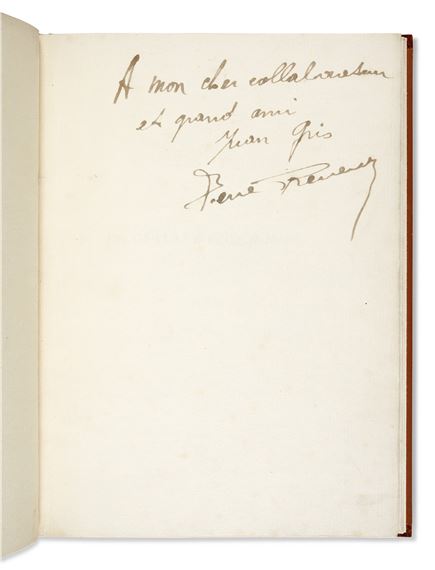 A mon cher collaborateur
et grand ami
Juan Gris
René